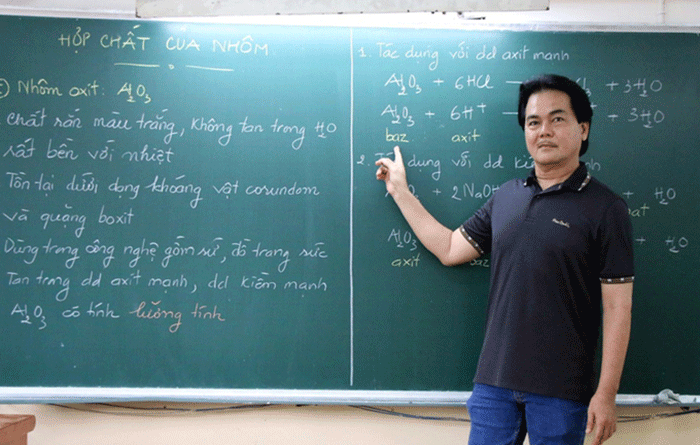 HỢP CHẤT CỦA NHÔM
Nhôm axit: Al2O3
chất rắn màu trắng, không tan trong H2O
rất bền với nhiệt
Tồn tại dưới dạng khoáng vật corundom
và quặng boxit
Dùng trong công nghệ gốm sứ, đồ trang sức
Tan trong dd axit mạnh, dd kiềm mạnh
Al2O3 có tính lưỡng tính
1. Tác dụng với dd axit mạnh
Al2O3 + 6HCl → + 3H2O
Al2O3 + 6H+ → + 3H2O
baz axit
2. dụng với dd mạnh
+ 2NaOH + H2O
Al2O3 + H2O
axit baz